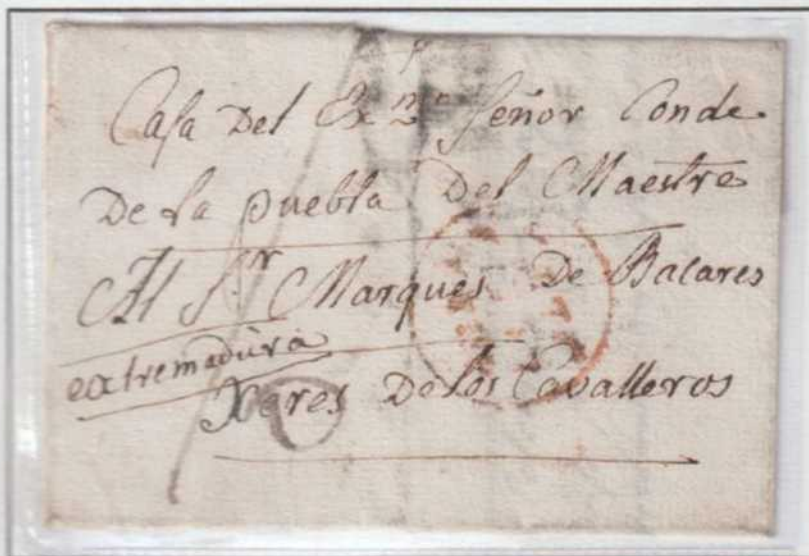 Casa Del Exmo Señor Conde
De la puebla Del Maestre
Al Sr Marques De Bacares
extremadura
Xeres De los Cavalleros